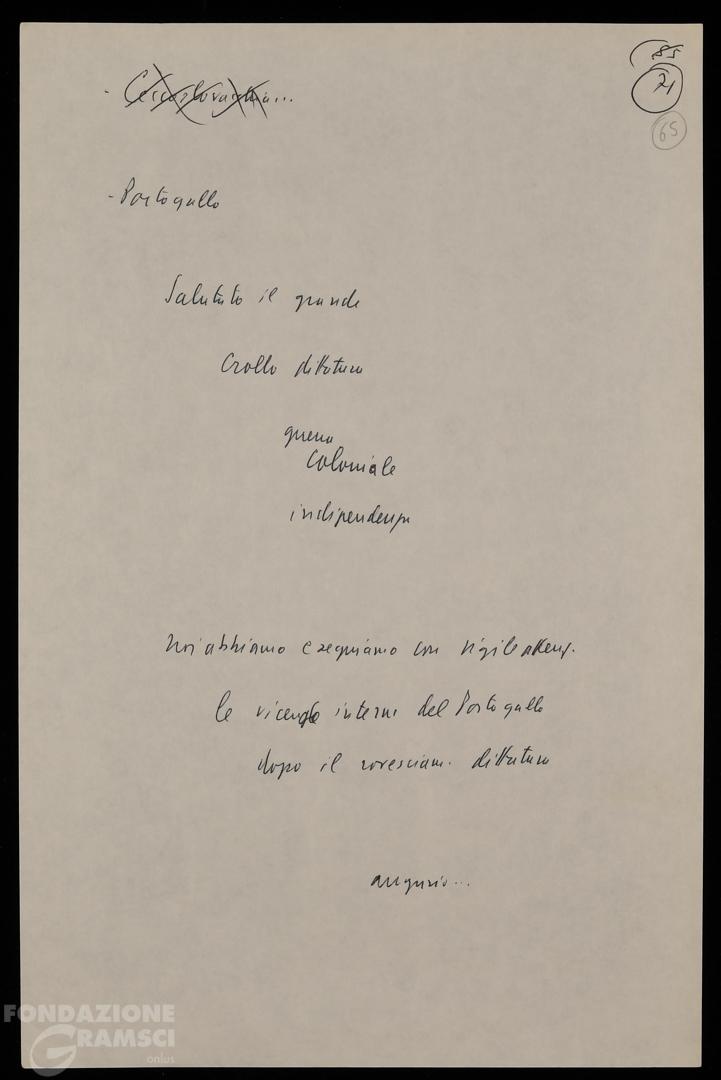 - Cecoslovacchia...
85
21
65
- Portogallo
Salutato il grande
Crollo dittatura
guerra
coloniale
indipendenza
Noi abbiamo e seguiamo con vigile attenz.
le vicende interne del Portogallo
dopo il rovesciam. dittatura
augurio...
FONDAZIONE
GRAMSCI
onlus